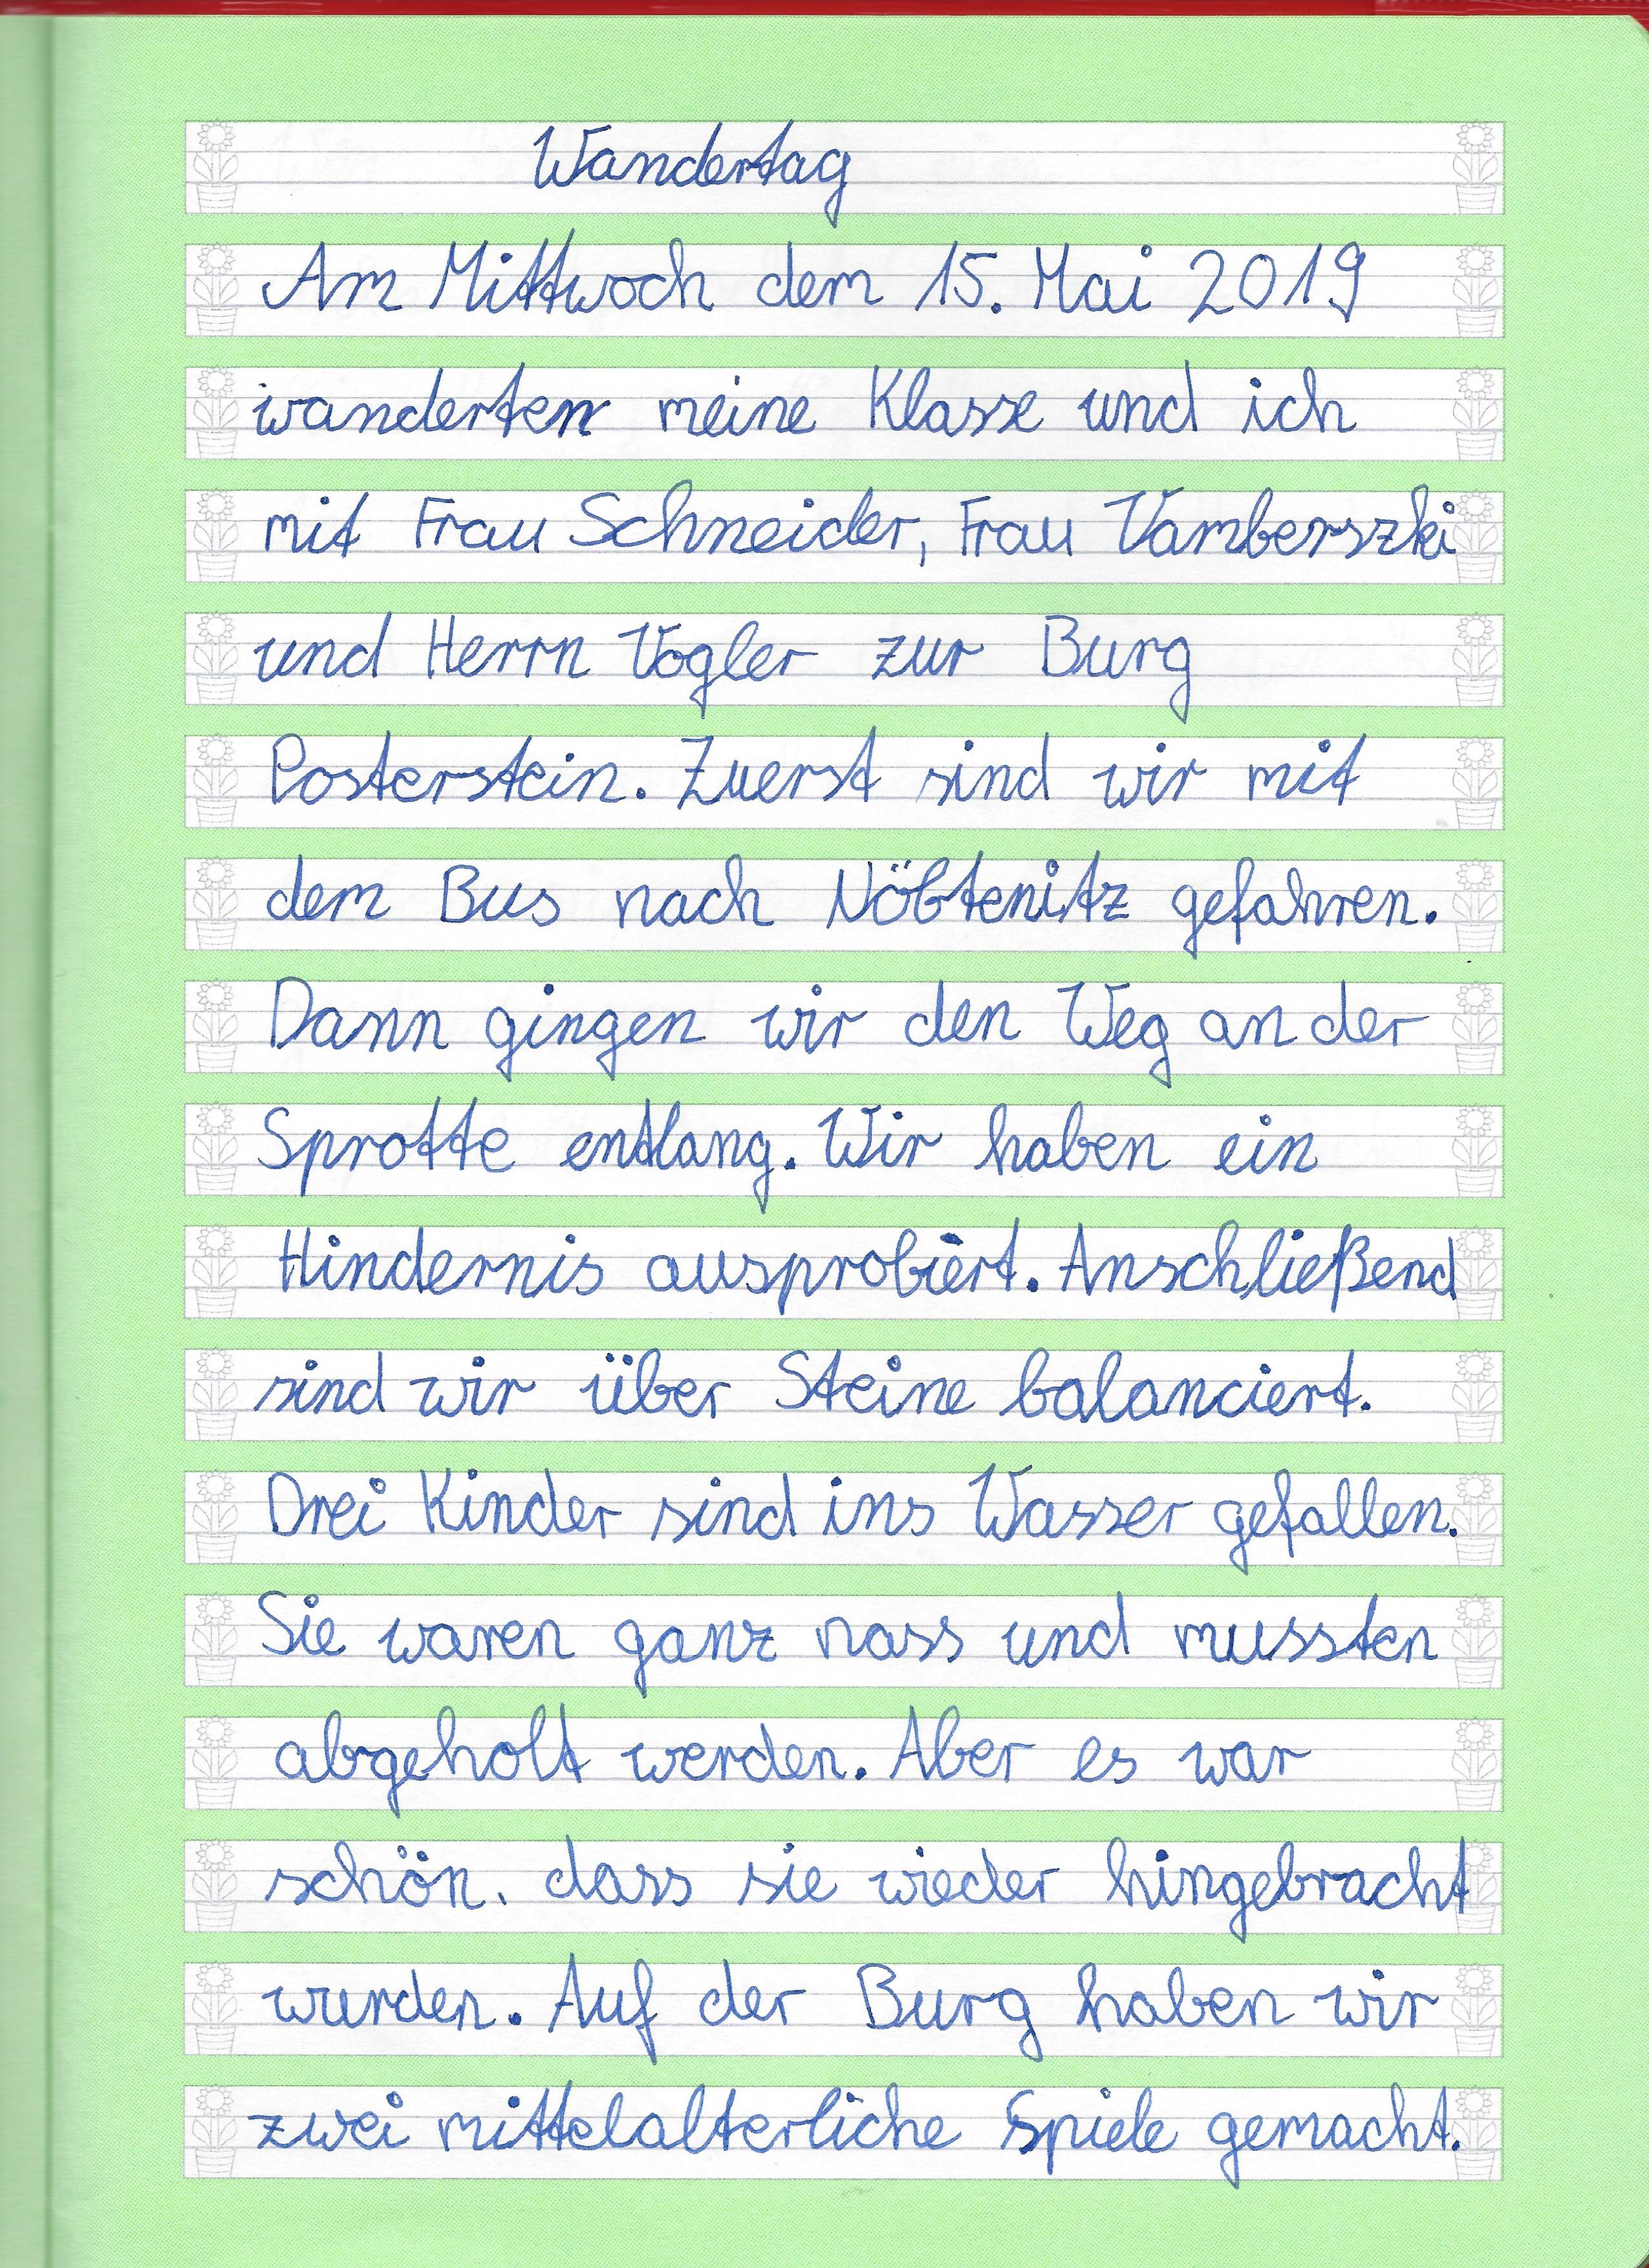 Wandertag
Am Mittwoch dem 15. Mai 2019
wanderten meine Klasse und ich
mit Frau Schneider, Frau Vamberszki
und Herrn Vogler zur Burg
Posterstein. Zuerst sind wir mit
dem Bus nach Nöbtenitz gefahren.
Dann gingen wir den Weg an der
Sprotte entlang. Wir haben ein
Hindernis ausprobiert. Anschließend
sind wir über Steine balanciert.
Drei Kinder sind ins Wasser gefallen.
Sie waren ganz nass und mussten
abgeholt werden. Aber es war
schön, dass sie wieder hingebracht
wurden. Auf der Burg haben wir
zwei mittelalterliche Spiele gemacht.